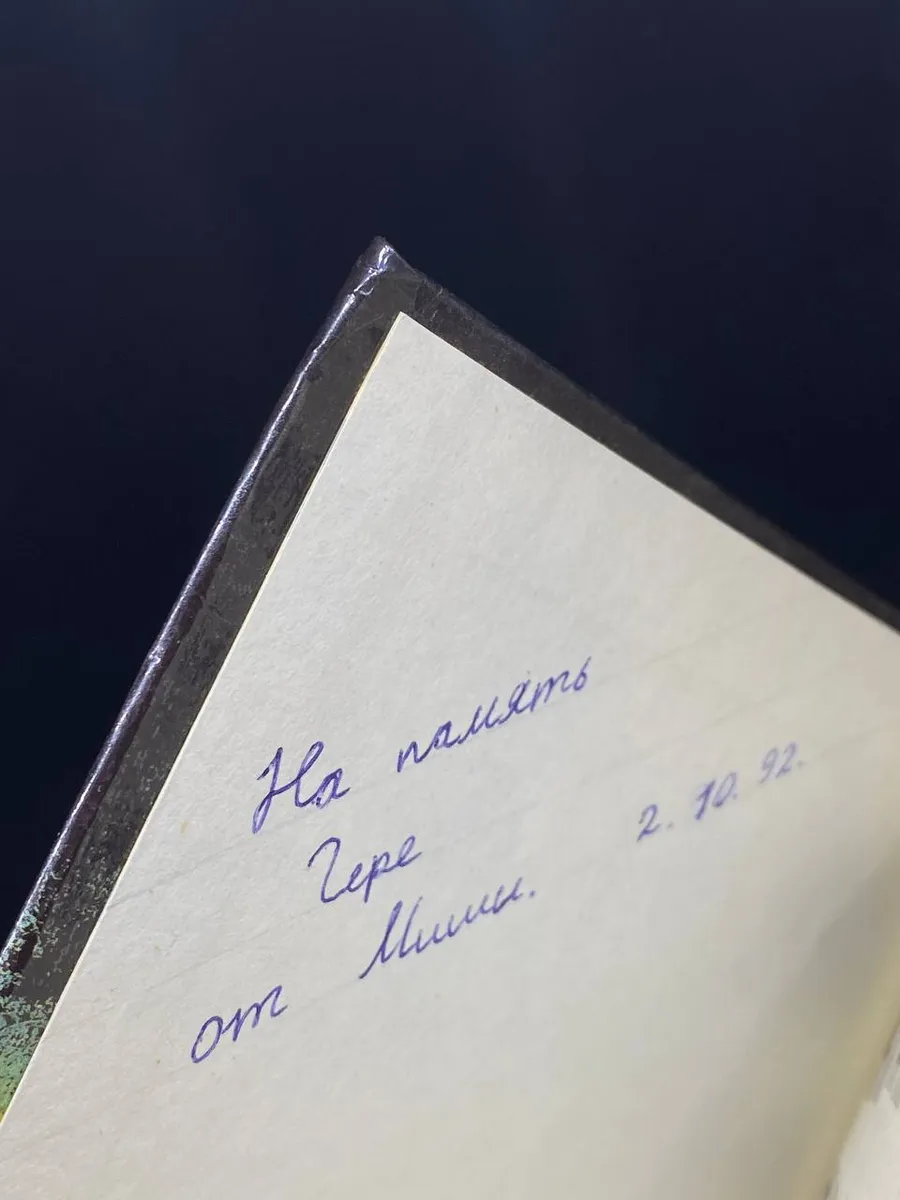 На память
Гере
от Миши.
2. 10. 92.